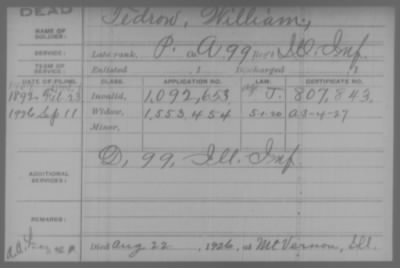 DEAD
NAME OF SOLDIER: Tedrow, William,
SERVICE: Late rank, P. Co. A, 99 Reg't Ill. Inf.
TERM OF SERVICE: Enlisted , 1 Discharged , 1
DATE OF FILING. CLASS. APPLICATION NO. LAW. CERTIFICATE NO.
1892 Feb. 23 Invalid, 1,092,653 J. 807,843,
1926 Sep 11 Widow, 1,553,454 5-1-20 A 3-4-27
Minor,
D, 99, Ill. Inf.
ADDITIONAL SERVICES:
REMARKS:
Died Aug 22, 1926, at Mt. Vernon, Ill.